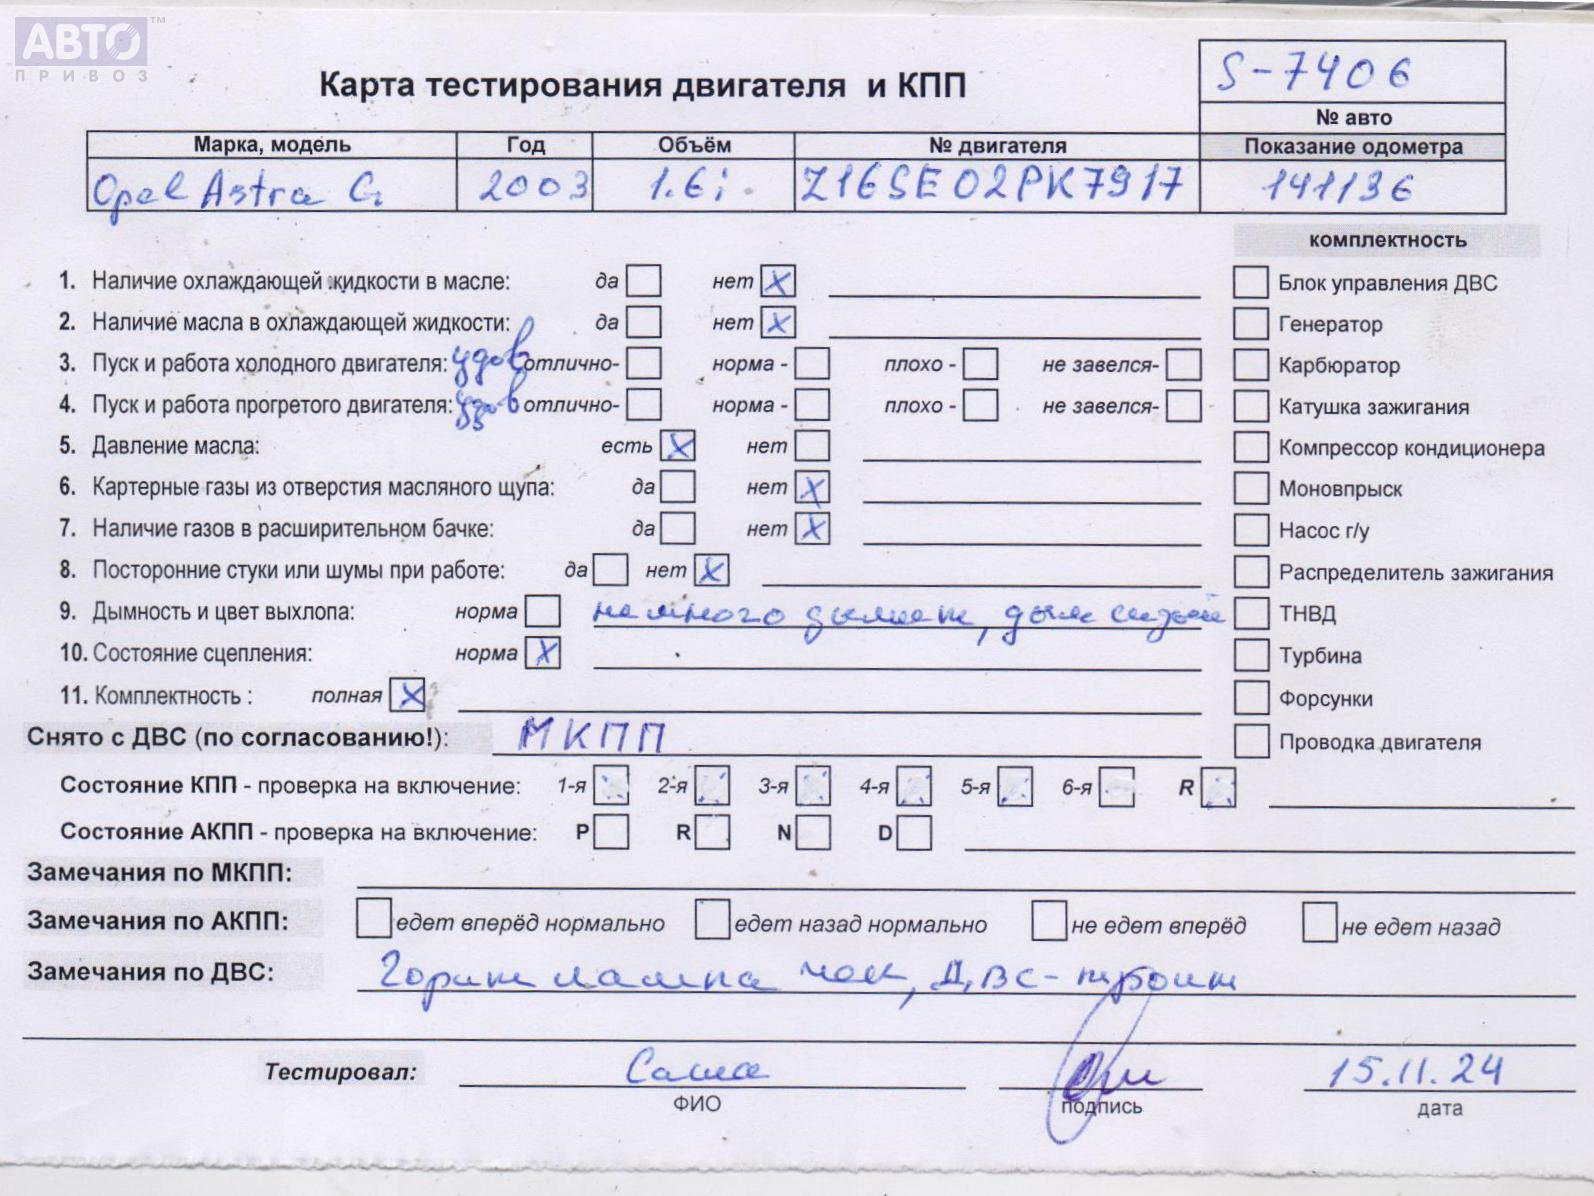 АВТО™
ПРИВОЗ
S-7406
Карта тестирования двигателя и КПП
№ авто
Марка, модель Год Объём № двигателя Показание одометра
Opel Astra G 2003 1.6i Z16SE 02PK7917 141136
комплектность
1. Наличие охлаждающей жидкости в масле: да нет X
Блок управления ДВС
2. Наличие масла в охлаждающей жидкости: да нет X
Генератор
3. Пуск и работа холодного двигателя: удов отлично- норма - плохо - не завелся-
Карбюратор
4. Пуск и работа прогретого двигателя: удов отлично- норма - плохо - не завелся-
Катушка зажигания
5. Давление масла: есть X нет
Компрессор кондиционера
6. Картерные газы из отверстия масляного щупа: да нет X
Моновпрыск
7. Наличие газов в расширительном бачке: да нет X
Насос г/у
8. Посторонние стуки или шумы при работе: да нет X
Распределитель зажигания
9. Дымность и цвет выхлопа: норма немного дымит, дым сизый
ТНВД
10. Состояние сцепления: норма X
Турбина
11. Комплектность : полная X
Форсунки
Снято с ДВС (по согласованию!): МКПП
Проводка двигателя
Состояние КПП - проверка на включение: 1-я 2-я 3-я 4-я 5-я 6-я R
Состояние АКПП - проверка на включение: P R N D
Замечания по МКПП:
Замечания по АКПП: едет вперёд нормально едет назад нормально не едет вперёд не едет назад
Замечания по ДВС: Горит лампа чек, ДВС-троит
Тестировал: Саша 15.11.24
ФИО подпись дата